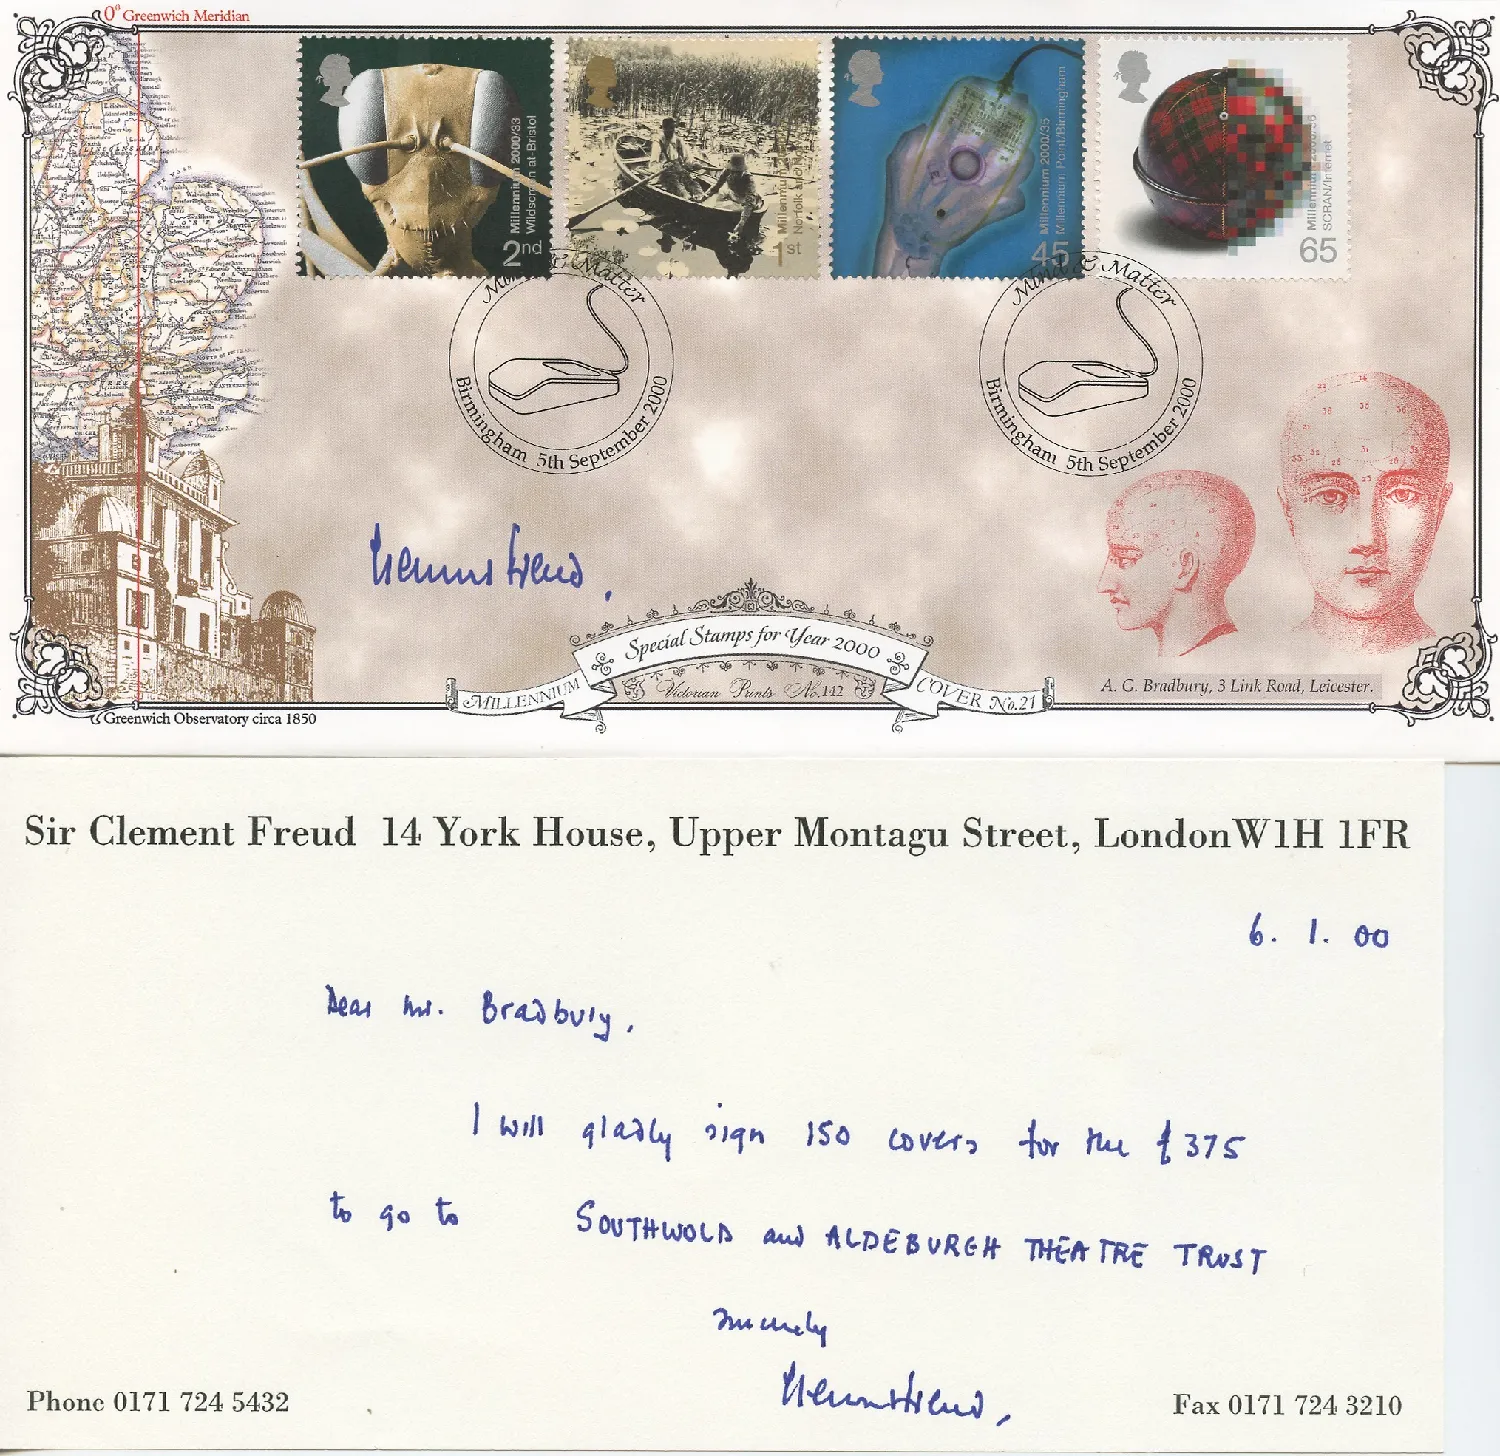 0° Greenwich Meridian
Millennium 2000/33
Wildscreen at-Bristol
2nd
1st
Millennium 2000/35
Millennium Point/Birmingham
45
SCRAN/Internet
65
Mind & Matter
Birmingham 5th September 2000
Mind & Matter
Birmingham 5th September 2000
Clement Freud.
Special Stamps for Year 2000
MILLENNIUM
Victorian Prints No.142
COVER No.21
A. G. Bradbury, 3 Link Road, Leicester.
Greenwich Observatory circa 1850
Sir Clement Freud 14 York House, Upper Montagu Street, London W1H 1FR
6. 1. 00
Dear Mr. Bradbury,
I will gladly sign 150 covers for the £375
to go to SOUTHWOLD and ALDEBURGH THEATRE TRUST
sincerely
Clement Freud,
Phone 0171 724 5432
Fax 0171 724 3210